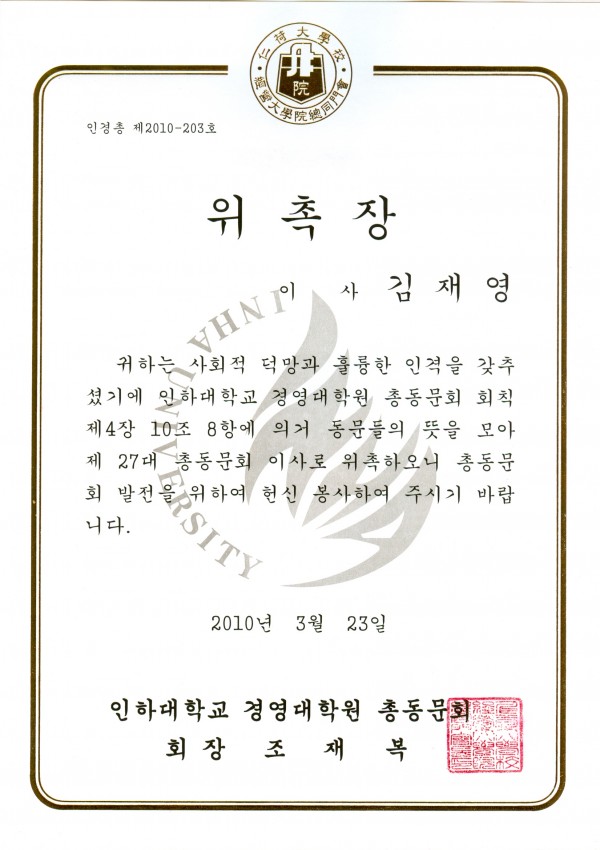 仁荷大學校
經營大學院總同門會
院
인경총 제2010-203호
위 촉 장
이 사 김 재 영
INHA UNIVERSITY
귀하는 사회적 덕망과 훌륭한 인격을 갖추
셨기에 인하대학교 경영대학원 총동문회 회칙
제4장 10조 8항에 의거 동문들의 뜻을 모아
제 27대 총동문회 이사로 위촉하오니 총동문
회 발전을 위하여 헌신 봉사하여 주시기 바랍
니다.
2010년 3월 23일
인하대학교 경영대학원 총동문회
회 장 조 재 복